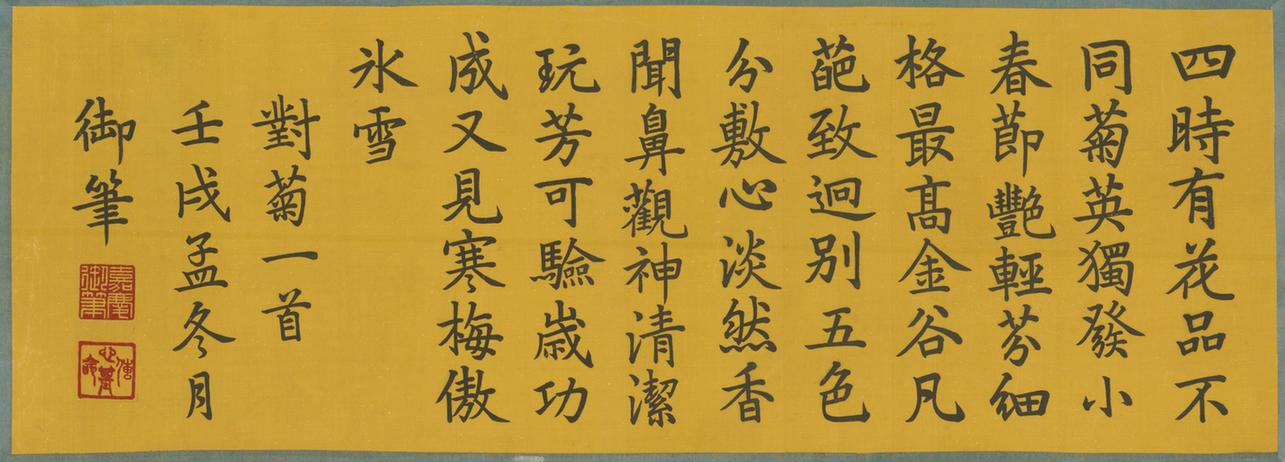 四時有花品不
同菊英獨發小
春節艷輕芬細
格最髙金谷凡
葩致迥别五色
分敷心淡然香
聞鼻觀神清潔
玩芳可驗歳功
成又見寒梅傲
氷雪
對菊一首
壬戌孟冬月
御筆
嘉慶
御筆
傳心基命